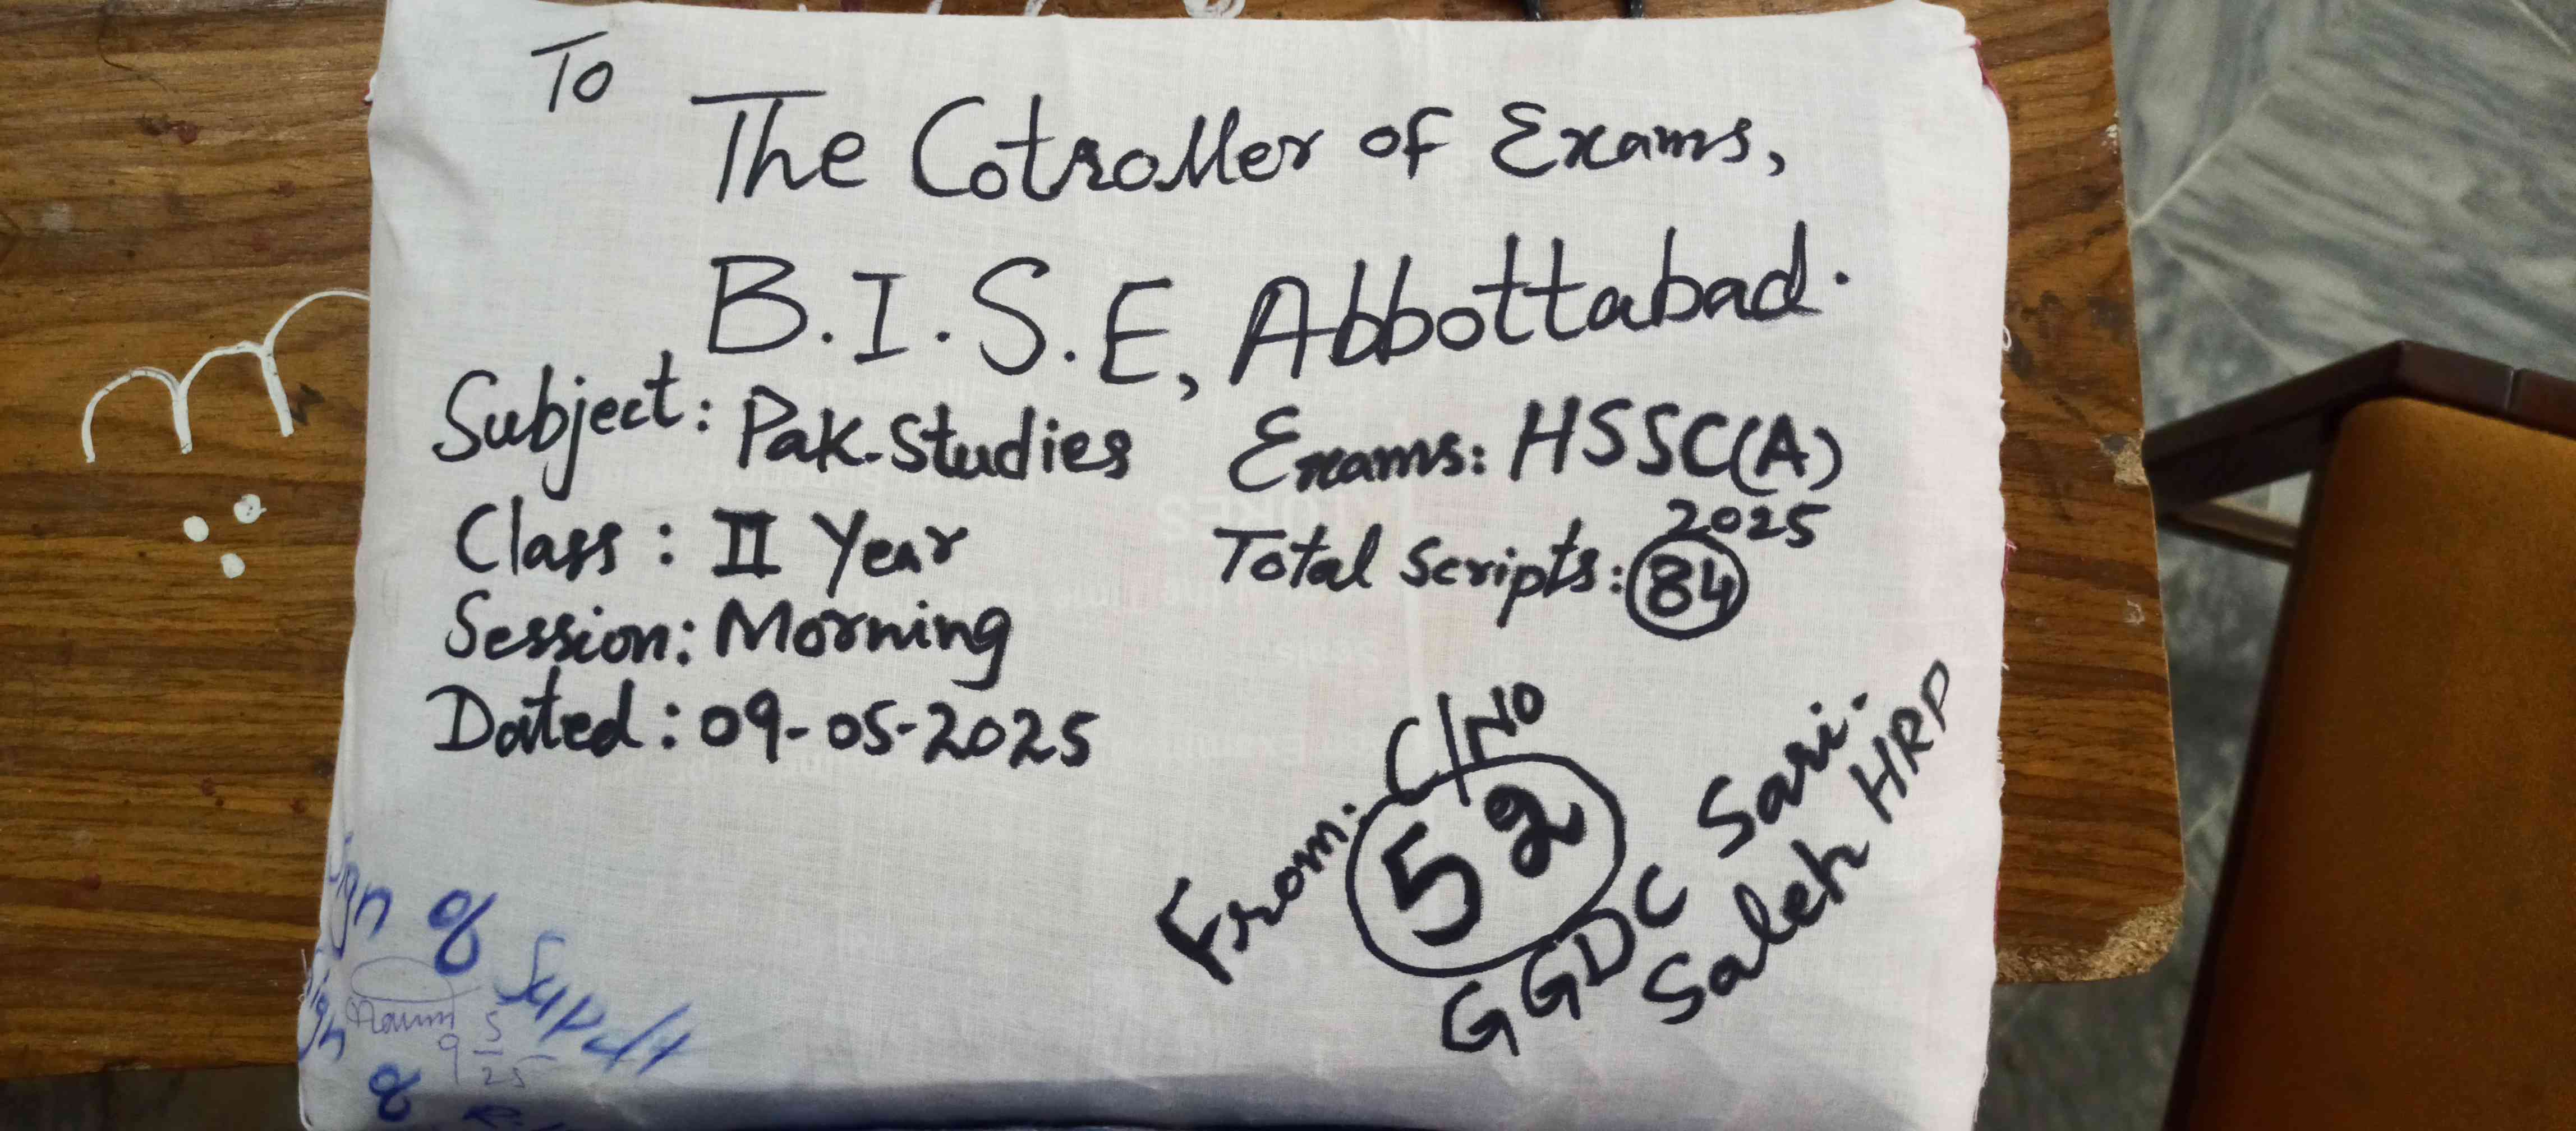 To
The Cotroller of Exams,
B.I.S.E, Abbottabad.
Subject: Pak.Studies
Exams: HSSC(A)
2025
Class: II Year
Total Scripts: 84
Session: Morning
Dated: 09-05-2025
From: C/No
52
GGDC Sari.
Saleh HRP
Sign of
Supdtt
Sign
of
9 5
25